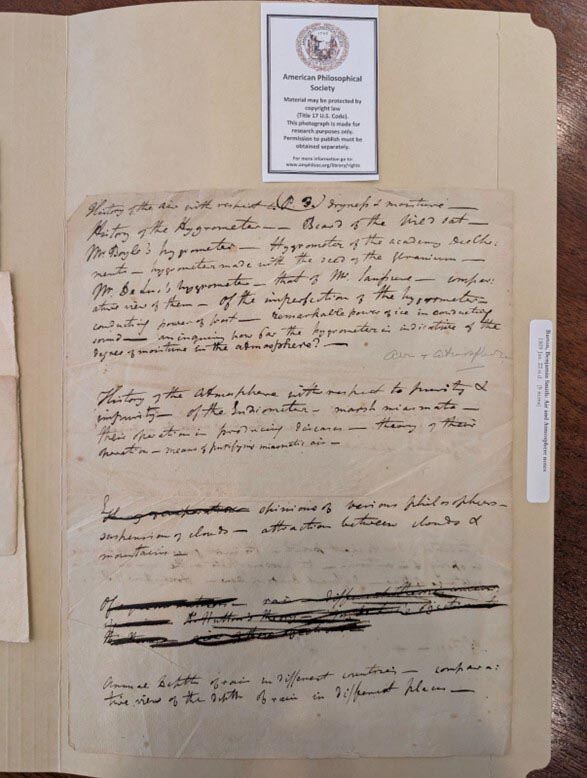 American Philosophical
Society
Material may be protected by
copyright law
(Title 17 U.S. Code).
This photograph is made for
research purposes only.
Permission to publish must be
obtained separately.
For more information go to:
www.amphilsoc.org/library/rights
History of the Air with respect to (P. 3.) dryness & moisture —
History of the Hygrometer — Beard of the Wild oat —
Mr. Boyle's hygrometer — Hygrometer of the academy del Ci:
mento — hygrometer made with the seed of the Geranium —
Mr. De Luc's hygrometer — that of Mr. Saussure — compar:
ative view of them — Of the imperfection of the hygrometer —
conducting power of frost — remarkable power of ice in conducting
sound — an inquiry how far the hygrometer is indicative of the
degree of moisture in the atmosphere? —
Air & Atmosphere
History of the Atmosphere with respect to purity &
impurity — of the Eudiometer — marsh miasmata —
their operation in producing diseases — theory of their
operation — means of purifying miasmatic air —
opinions of various philosophers —
suspension of clouds — attraction between clouds &
mountains —
Of — rain — different
Dr. Hutton's theory —
Annual depth of rain in different countries — compara:
tive view of the depth of rain in different places —
Barton, Benjamin Smith: Air and Atmosphere notes